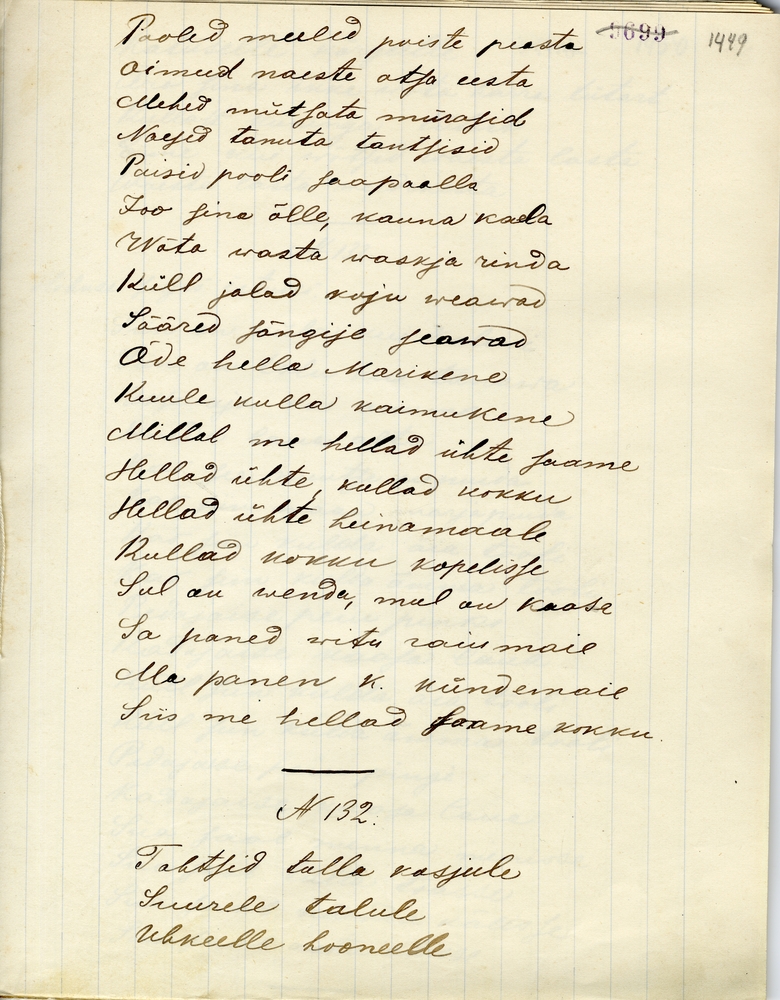 5699 1449
Pooled meeled poiste peasta
Oimud naeste otsa eesta
Mehed mütsata mürasid
Naesed tanuta tantsisid
Paisid pooli saapaalla
Joo sina õlle, kauna kaela
Wõta wasta waskja rinda
Küll jalad koju weawad
Sääred sängije seawad
Õde hella Marikene
Kuule kulla kaimukene
Millal me hellad ühte saame
Hellad ühte, kullad kokku
Hellad ühte heinamaale
Kullad kokku kopelisse
Sul on wenda, mul on kaasa
Sa paned witu raiumaie
Ma panen k. kündemaie
Siis me hellad saame kokku.
N 132.
Tahtsid tulla kosjule
Suurele talule
Uhkeelle hooneelle